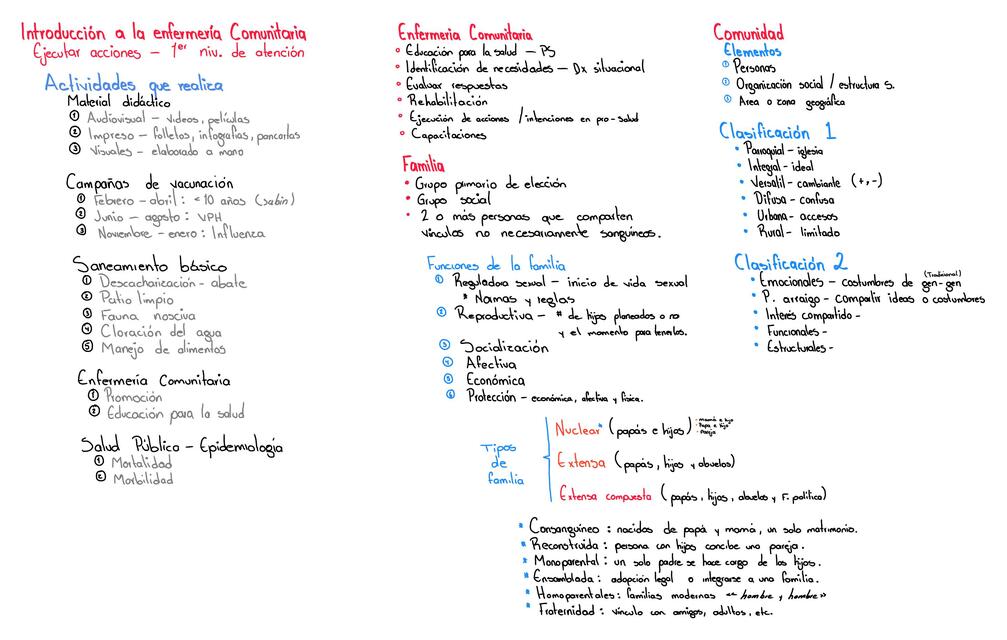 Introducción a la enfermería Comunitaria
Ejecutar acciones — 1er niv. de atención
Actividades que realiza
Material didáctico
① Audiovisual — videos, películas
② Impreso — folletos, infografías, pancartas
③ Visuales — elaborado a mano
Campañas de vacunación
① Febrero - abril : <10 años (sabin)
② Junio - agosto : VPH
③ Noviembre - enero : Influenza
Saneamiento básico
① Descacharización - abate
② Patio limpio
③ Fauna nosciva
④ Cloración del agua
⑤ Manejo de alimentos
Enfermería Comunitaria
① Promoción
② Educación para la salud
Salud Público — Epidemiología
① Mortalidad
② Morbilidad
Enfermeria Comunitaria
• Educación para la salud — PS
• Identificación de necesidades — Dx situacional
• Evaluar respuestas
• Rehabilitación
• Ejecución de acciones /intenciones en pro-salud
• Capacitaciones
Familia
• Grupo primario de elección
• Grupo social
• 2 o más personas que comparten
vínculos no necesariamente sanguíneos.
Funciones de la familia
① Reguladora sexual — inicio de vida sexual
* Normas y reglas
② Reproductiva — # de hijos planeados o no
y el momento para tenerlos.
③ Socialización
④ Afectiva
⑤ Económica
⑥ Protección — económica, afectiva y física.
Tipos
de
familia
Nuclear* (papás e hijos)
• mamá e hijo
• Papa e hijo
• pareja
Extensa (papás, hijos y abuelos)
Extensa compuesta (papás, hijos, abuelos y F. política)
* Consanguíneo : nacidos de papá y mamá, un solo matrimonio.
* Reconstruida : persona con hijos concibe una pareja.
* Monoparental : un solo padre se hace cargo de los hijos.
* Ensamblada : adopción legal o integrarse a una familia.
* Homoparentales : familias modernas «hombre y hombre»
* Fraternidad : vínculo con amigos, adultos, etc.
Comunidad
Elementos
① Personas
② Organización social / estructura S.
③ Area o zona geográfica
Clasificación 1
• Parroquial - iglesia
• Integral - ideal
• Versátil - cambiante (+,-)
• Difusa - confusa
• Urbana - accesos
• Rural - limitado
Clasificación 2
• Emocionales — costumbres de gen-gen (Tradicional)
• P. arraigo - compartir ideas o costumbres
• Interés compartido -
• Funcionales -
• Estructurales -